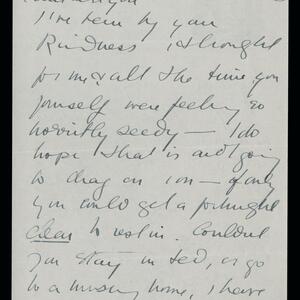 you
I've been by your
Kindness & thought
for me & all the time you
yourself were feeling so
horribly seedy — I do
hope that is not going
to drag on 'on — if only
you could get a fortnight
clear to rest in. Couldn't
you stay in bed, or go
to a nursing home, I have